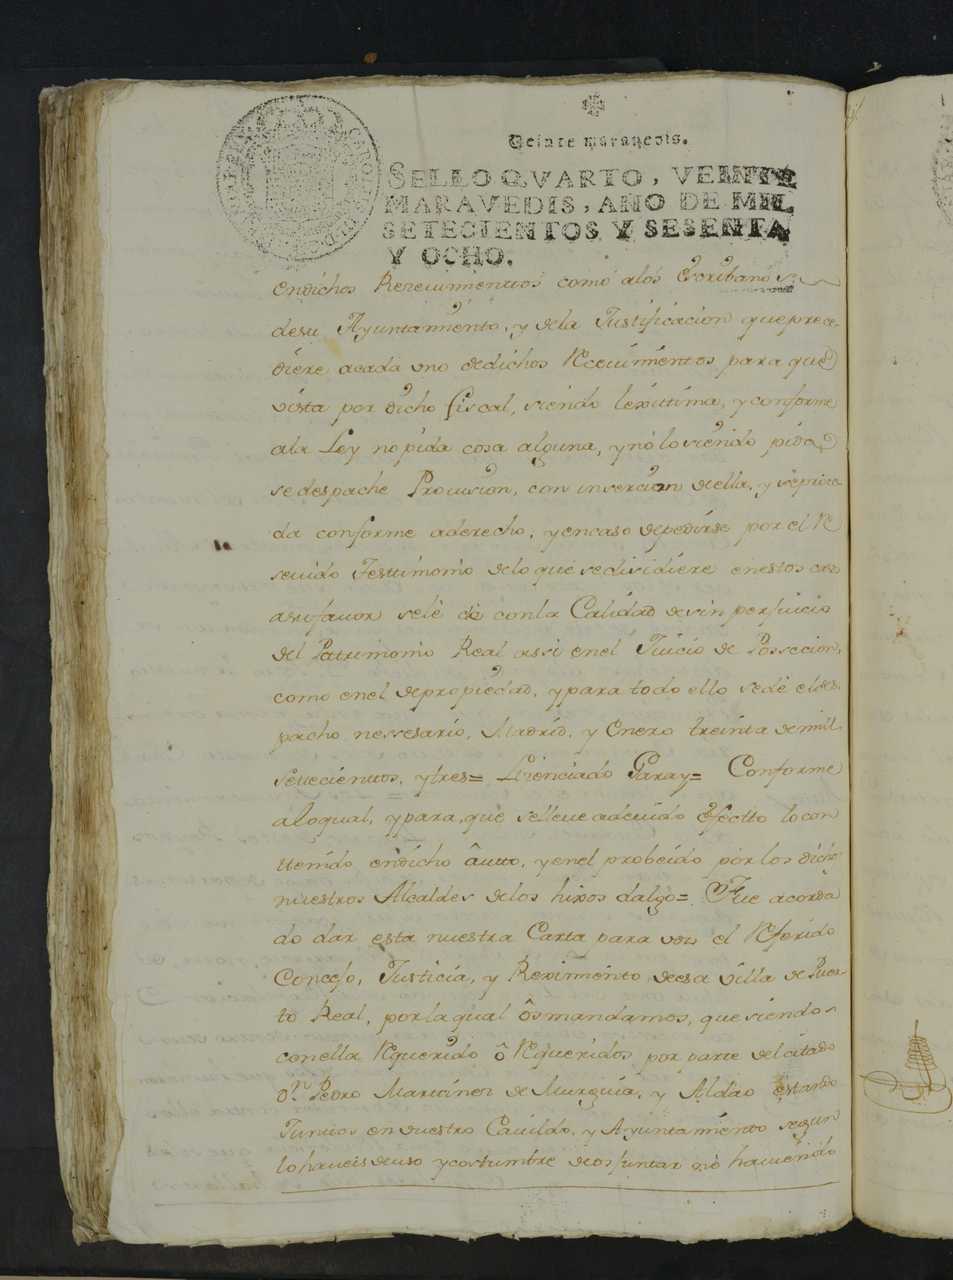 Veinte maravedis.
SELLO QVARTO, VEINTE
MARAVEDIS, AÑO DE MIL
SETECIENTOS Y SESENTA
Y OCHO.
endichos Rezeuimientos como alos Escribanos
desu Ayuntamiento, y dela Justificacion queprece-
diere acada uno dedichos Receuimientos para que
vista por dicho fiscal, siendo lexittima, y conforme
ala Ley no pida cosa alguna, y nó lo siendo pida
se despache Prouision, con insercion de ella, y se proce
da conforme aderecho, y encaso depedirse por el Re
seuido Testimonio delo que sedisidiere enestos casos
asufauor sele dé conla Calidad desin perjuicio
del Patrimonio Real assi en el Juicio de Possecion,
como enel depropiedad, y para todo ello sedé eldes-
pacho nessesario, Madrid, y Enero treinta demil
setecienttos, y tres = Lizenciado Garay = Conforme
alo qual, y para, que selleue adeuido efectto lo con
tenido endicho âutto, y enel probeido por los dichos
nuestros Alcaldes delos hixos dalgo = Fue acorda
do dar esta nuestra Carta para vos el Referido
Concejo, Justicia, y Reximiento deesa villa de Puer-
to Real, por la qual ôs mandamos, que siendo
conella Requerido ô Requeridos por parte del citado
Dn. Pedro Martinez de Murguia, y Aldao estando
Juntos en vuestro Cauildo, y Ayuntamiento segun
lo haueis deuso y costumbre deos juntar no hauiendo